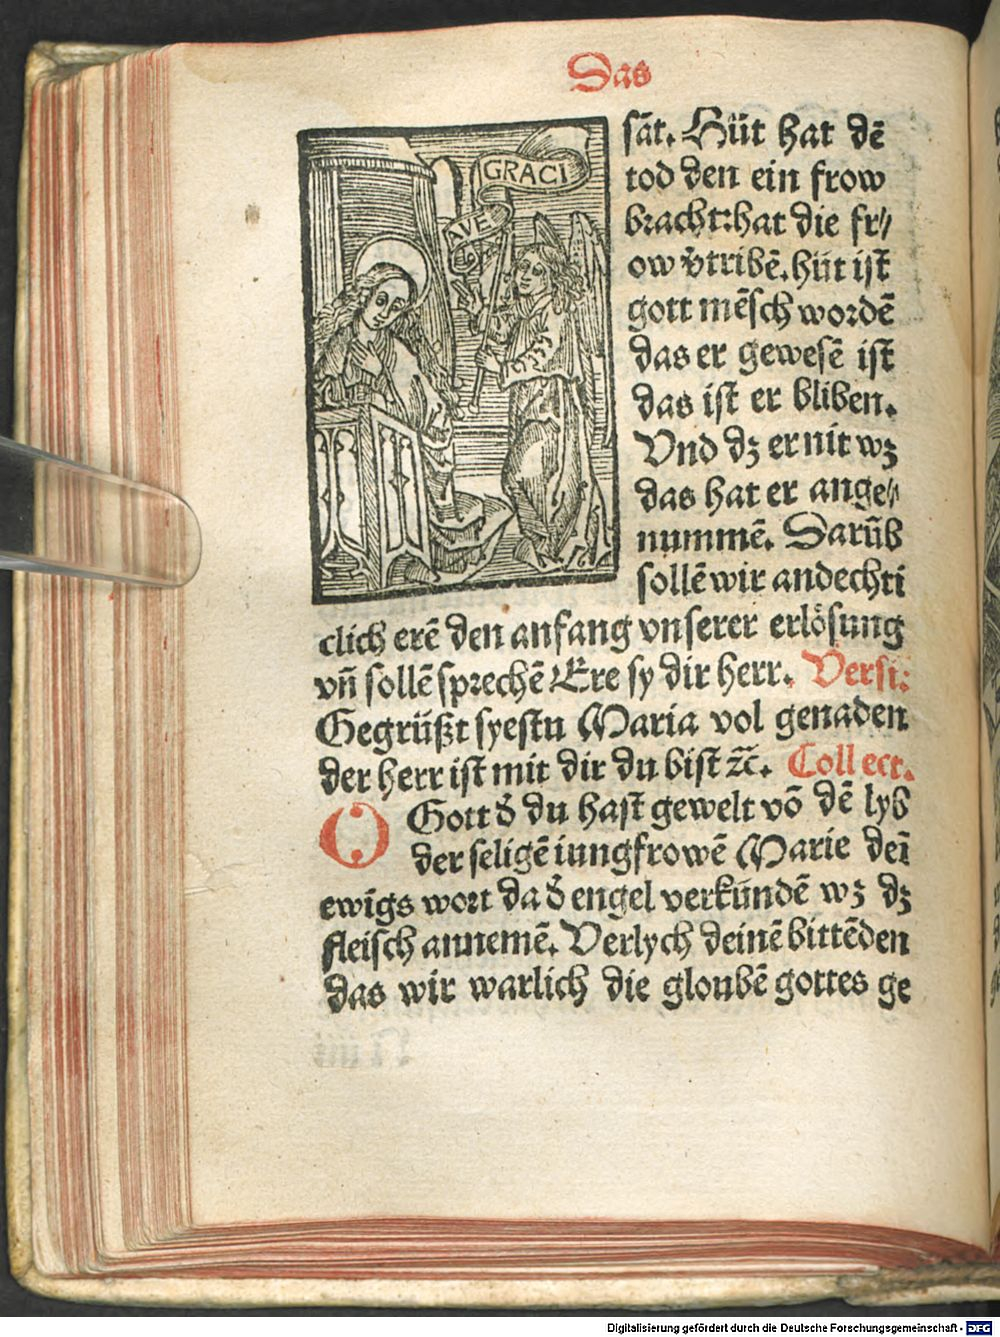 Das
GRACI
AVE
sāt. Hüt hat dē
tod den ein frow
bracht: hat die fr⸗
ow v̄tribē. hüt ist
gott mēsch wordē
das er gewesē ist
das ist er bliben.
Vnd dz er nit wz
das hat er ange⸗
nummē. Darūb
sollē wir andechti
clich erē den anfang vnserer erlösung
vn̄ sollē sprechē Ere sy dir herr. Versi.
Gegrüßt syestu Maria vol genaden
der herr ist mit dir du bist ꝛc̄. Collect.
O Gott d̄ du hast gewelt vō dē lyb
der seligē iungfrowē Marie deī
ewīgs wort da d̄ engel verkündē wz dz
fleisch annemē. Verlych deinē bittēden
das wir warlich die gloubē gottes ge
Digitalisierung gefördert durch die Deutsche Forschungsgemeinschaft - DFG